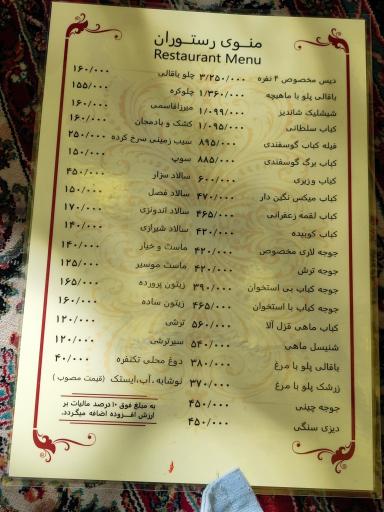 منوی رستوران
Restaurant Menu
دیس مخصوص ۴ نفره ۳/۲۵۰/۰۰۰
باقالی پلو با ماهیچه ۱/۳۶۰/۰۰۰
شیشلیک شاندیز ۱/۰۹۹/۰۰۰
کباب سلطانی ۱/۰۹۵/۰۰۰
فیله کباب گوسفندی ۸۹۵/۰۰۰
کباب برگ گوسفندی ۸۸۵/۰۰۰
کباب وزیری ۶۰۰/۰۰۰
کباب میکس نگین دار ۴۷۰/۰۰۰
کباب لقمه زعفرانی ۴۶۵/۰۰۰
کباب کوبیده ۴۲۰/۰۰۰
جوجه لاری مخصوص ۴۲۰/۰۰۰
جوجه ترش ۴۲۰/۰۰۰
جوجه کباب بی استخوان ۳۹۰/۰۰۰
جوجه کباب با استخوان ۴۶۵/۰۰۰
کباب ماهی قزل آلا ۵۶۰/۰۰۰
شنیسل ماهی ۵۴۰/۰۰۰
باقالی پلو با مرغ ۳۸۰/۰۰۰
زرشک پلو با مرغ ۳۷۰/۰۰۰
جوجه چینی ۴۵۰/۰۰۰
دیزی سنگی ۴۵۰/۰۰۰
چلو باقالی ۱۶۰/۰۰۰
چلوکره ۱۵۵/۰۰۰
میرزاقاسمی ۱۶۰/۰۰۰
کشک و بادمجان ۱۶۰/۰۰۰
سیب زمینی سرخ کرده ۲۵۰/۰۰۰
سوپ ۱۵۰/۰۰۰
سالاد سزار ۴۵۰/۰۰۰
سالاد فصل ۱۵۰/۰۰۰
سالاد اندونزی ۱۷۰/۰۰۰
سالاد شیرازی ۱۴۰/۰۰۰
ماست و خیار ۱۴۰/۰۰۰
ماست موسیر ۱۲۵/۰۰۰
زیتون پرورده ۱۶۵/۰۰۰
زیتون ساده ۱۶۰/۰۰۰
ترشی ۱۲۰/۰۰۰
سیرترشی ۱۲۰/۰۰۰
دوغ محلی تکنفره ۴۰/۰۰۰
نوشابه ، آب ، ایستک (قیمت مصوب)
به مبلغ فوق ۱۰ درصد مالیات بر
ارزش افـزوده اضافه میگردد.